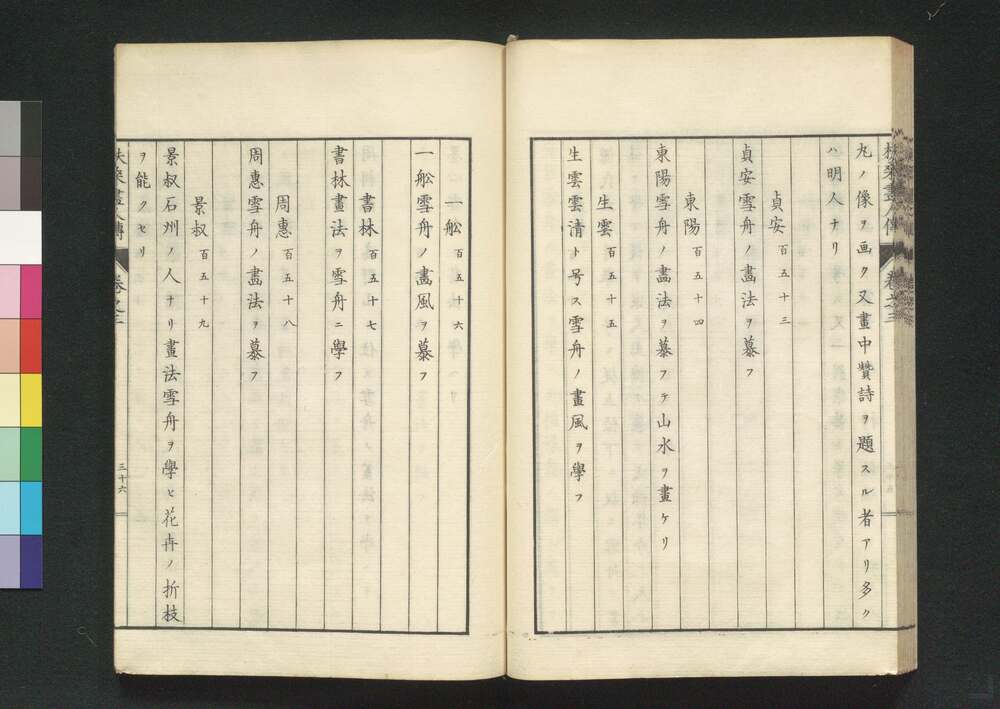 扶桑畫人傳 卷之三
丸ノ像ヲ画ク又畫中贊詩ヲ題スル者アリ多ク
ハ明人ナリ
貞安 百五十三
貞安雪舟ノ畵法ヲ慕フ
東陽 百五十四
東陽雪舟ノ畵法ヲ慕フテ山水ヲ畫ケリ
生雲 百五十五
生雲雲清ト号ス雪舟ノ畫風ヲ學フ
一舩 百五十六
一舩雪舟ノ畵風ヲ慕フ
書林 百五十七
書林畫法ヲ雪舟ニ學フ
周惠 百五十八
周惠雪舟ノ畵法ヲ慕フ
景叔 百五十九
景叔石州ノ人ナリ畫法雪舟ヲ學ヒ花卉ノ折枝
ヲ能クセリ
扶桑畫人傳 卷之三 三十六